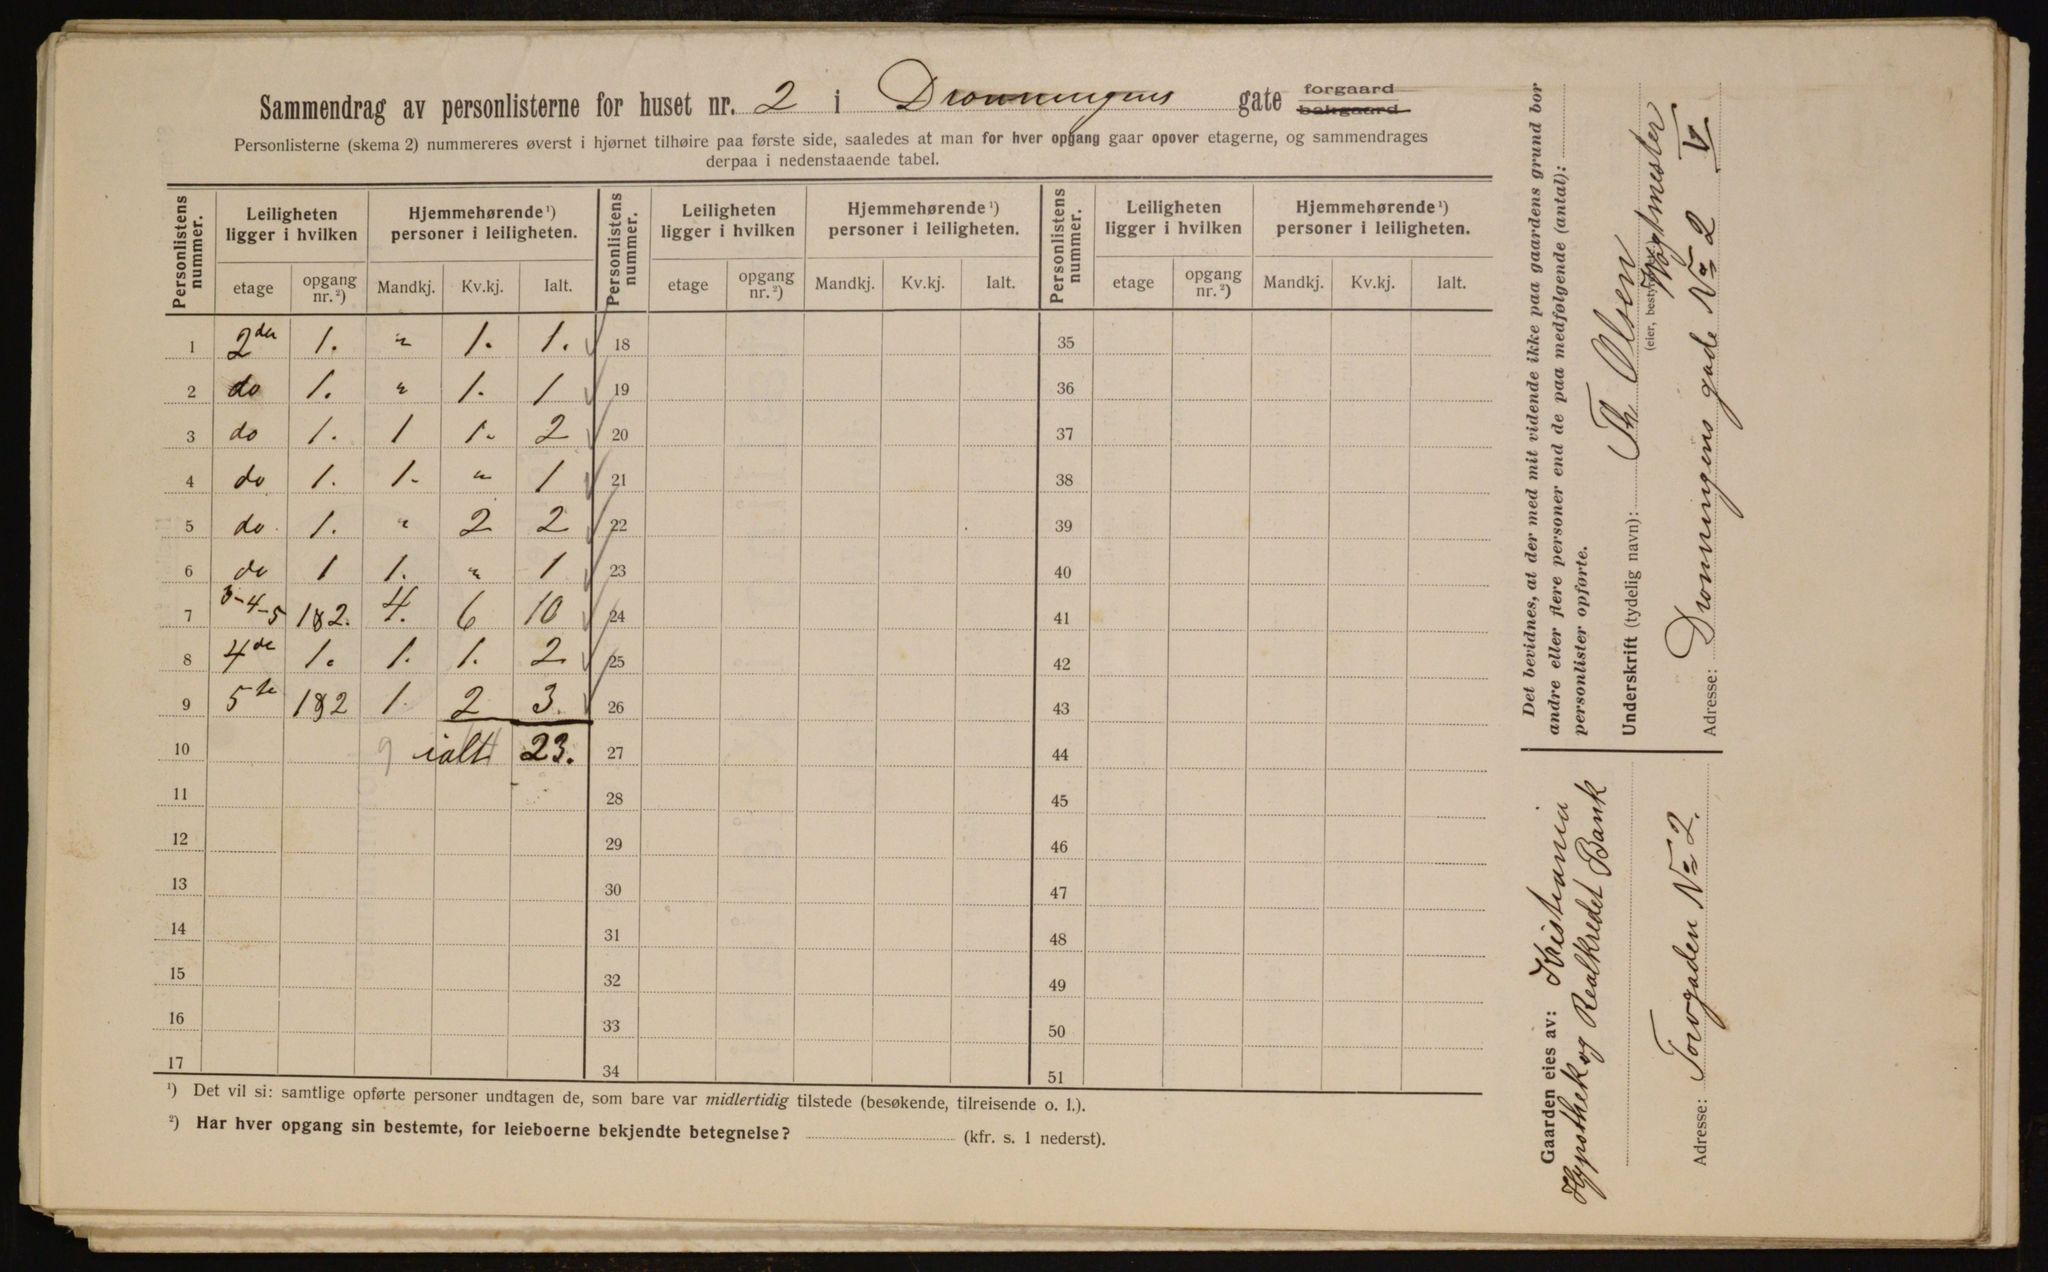 Sammendrag av personlisterne for huset nr. 2 i Dronningens gate forgaard
bakgaard
Personlisterne (skema 2) nummereres øverst i hjørnet tilhøire paa første side, saaledes at man for hver opgang gaar opover etagerne, og sammendrages
derpaa i nedenstaaende tabel.
Personlistens nummer. Leiligheten ligger i hvilken Hjemmehørende ¹) personer i leiligheten. Personlistens nummer. Leiligheten ligger i hvilken Hjemmehørende ¹) personer i leiligheten. Personlistens nummer. Leiligheten ligger i hvilken Hjemmehørende ¹) personer i leiligheten.
etage opgang nr. ²) Mandkj. Kv.kj. Ialt. etage opgang nr. ²) Mandkj. Kv.kj. Ialt. etage opgang nr. ²) Mandkj. Kv.kj. Ialt.
1 2den 1. " 1. 1. 18 35
2 do 1. " 1. 1 19 36
3 do 1. 1 1. 2 20 37
4 do 1. 1. " 1 21 38
5 do. 1. " 2 2 22 39
6 do 1 1. " 1 23 40
7 3-4-5 1&2. 4. 6 10 24 41
8 4de 1. 1. 1. 2 25 42
9 5te 1&2 1. 2 3. 26 43
10 9 ialt 23. 27 44
11 28 45
12 29 46
13 30 47
14 31 48
15 32 49
16 33 50
17 34 51
¹) Det vil si: samtlige opførte personer undtagen de, som bare var midlertidig tilstede (besøkende, tilreisende o. l.).
²) Har hver opgang sin bestemte, for leieboerne bekjendte betegnelse? (kfr. s. 1 nederst).
Det bevidnes, at der med mit vidende ikke paa gaardens grund bor
andre eller flere personer end de paa medfølgende (antal):
personlister opførte.
Underskrift (tydelig navn): Th Olsen Vagtmester
Adresse: Dronningens gade No 2 V
Gaarden eies av: Kristiania
Hypothek og Realkredit Bank
Adresse: Torvgaden No 2.